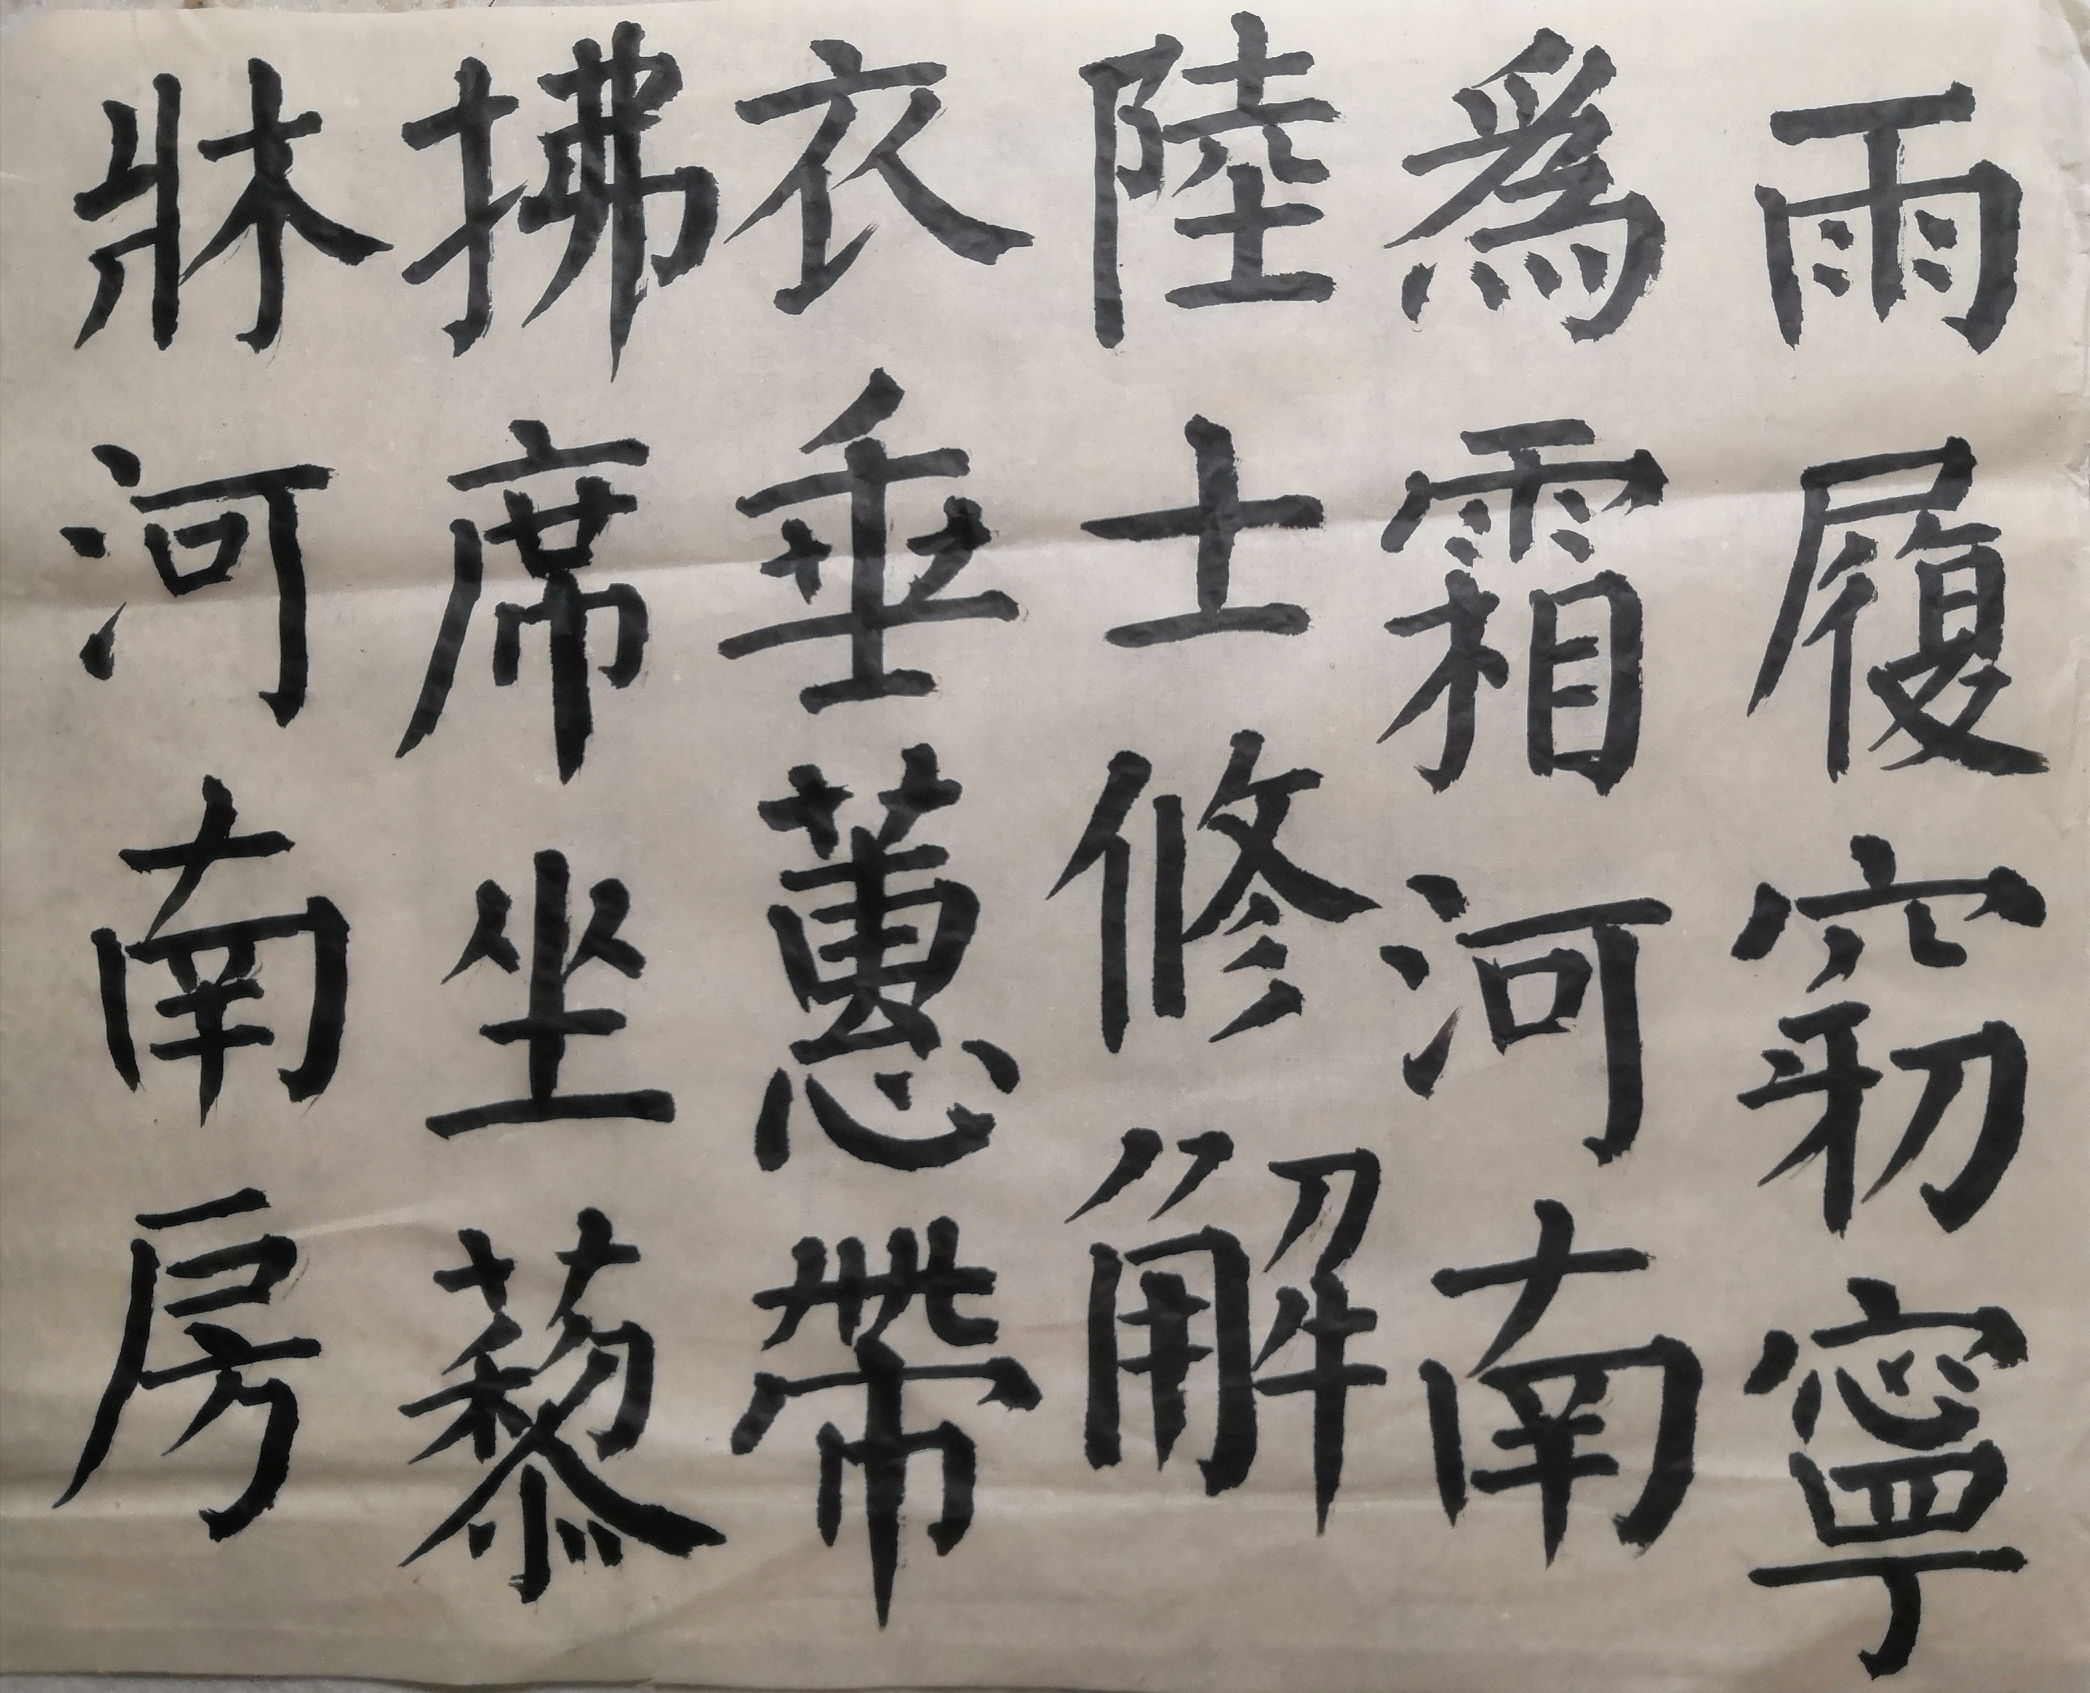 雨履穿寧
爲霜河南
陸士修解
衣垂蕙帶
拂席坐藜
牀河南房